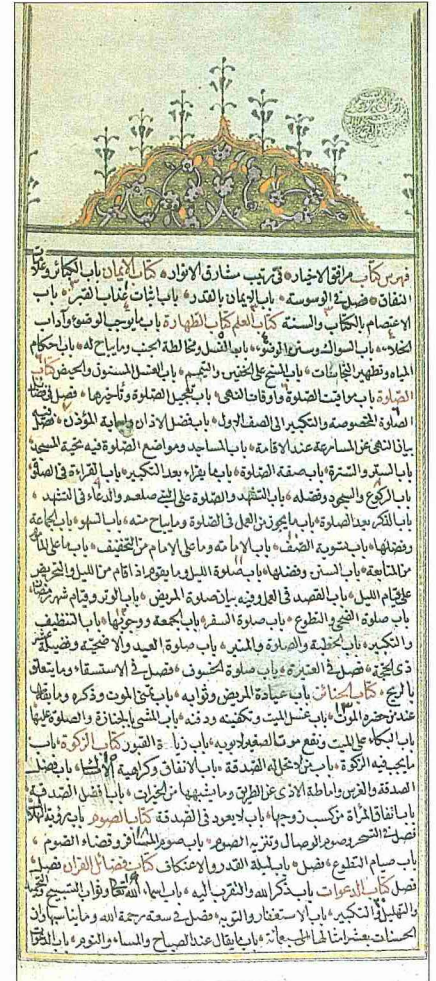 فهرس كتاب مرافق الاخيار في ترتيب مشارق الانوار كتاب الايمان باب الكبائر وعلامات
النفاق فصل في الوسوسة باب الايمان بالقدر باب اثبات عذاب القبر باب
الاعتصام بالكتاب والسنة كتاب العلم كتاب الطهارة باب ما يوجب الوضوء وآداب
الخلاء باب السواك وسنن الوضوء باب الغسل ومخالطة الجنب وما يباح له باب احكام
المياه وتطهير النجاسات باب المسح على الخفين والتيمم باب الغسل المسنون والحيض كتاب
الصلوة باب مواقت الصلوة واوقات النهى باب تعجيل الصلوة وتأخيرها فصل في فضل
الصلوة المخصوصة والتكبير الى الصف الاول باب فضل الاذان واجابة المؤذن فصل فيه
بيان النهى عن المسارعة عند الاقامة باب المساجد ومواضع الصلوة فيه تحية المسجد
باب الستر والسترة باب صفة الصلوة باب ما يقراء بعد التكبير باب القراءة في الصلوة
باب الركوع والسجود وفضله باب التشهد والصلوة على النبي صلعم والدعاء في التشهد
باب الذكر بعد الصلوة باب ما يجوز من العمل في الصلوة وما يباح منه باب السهو باب الجماعة
وفضلها باب تسوية الصف باب الامامة وما على الامام من التخفيف باب ما على المأموم
من المتابعة باب السنن وفضلها باب صلوة الليل وما يقول اذا قام من الليل والتحريض
على قيام الليل باب القصد في العمل وفيه بيان صلوة المريض باب الوتر وقيام شهر رمضان
باب صلوة الضحى والتطوع باب صلوة السفر باب الجمعة ووجوبها باب التنظيف
والتكبير باب الخطبة والصلوة والمنبر باب صلوة العيد والاضحية وفضيلة
ذى الحجة فصل في العتيرة باب صلوة الخسوف فصل في الاستسقاء وما يتعلق
بالريح كتاب الجنائز باب عيادة المريض وثوابه باب تمنى الموت وذكره وما يقال
عند من حضره الموت باب غسل الميت وتكفينه ودفنه باب المشى بالجنازة والصلوة عليها
باب البكاء على الميت ونفع موت الصغير لابويه باب زيارة القبور كتاب الزكوة باب
ما يجب فيه الزكوة باب من لا تحل له الصدقة باب الانفاق وكراهية الامساك باب فضل
الصدقة والغرس واماطة الاذى عن الطريق وما يشبهها من الخيرات باب افضل الصدقة
باب انفاق المرأة من كسب زوجها باب لا يعود في الصدقة كتاب الصوم باب رؤية الهلال
فصل في السحر وصوم الوصال وتنزيه الصوم باب صوم المسافر وقضاء الصوم
باب صيام التطوع فصل باب ليلة القدر والاعتكاف كتاب فضائل القران فصل
فصل كتاب الدعوات باب ذكر الله والتقرب اليه باب اسماء الله تعالى وثواب التسبيح
والتهليل والتكبير باب الاستغفار والتوبة فصل في سعة رحمة الله وما يناسبها وان
الحسنات بعشر امثالها الى سبعمائة باب ما يقال عند الصباح والمساء والنوم باب الدعوات